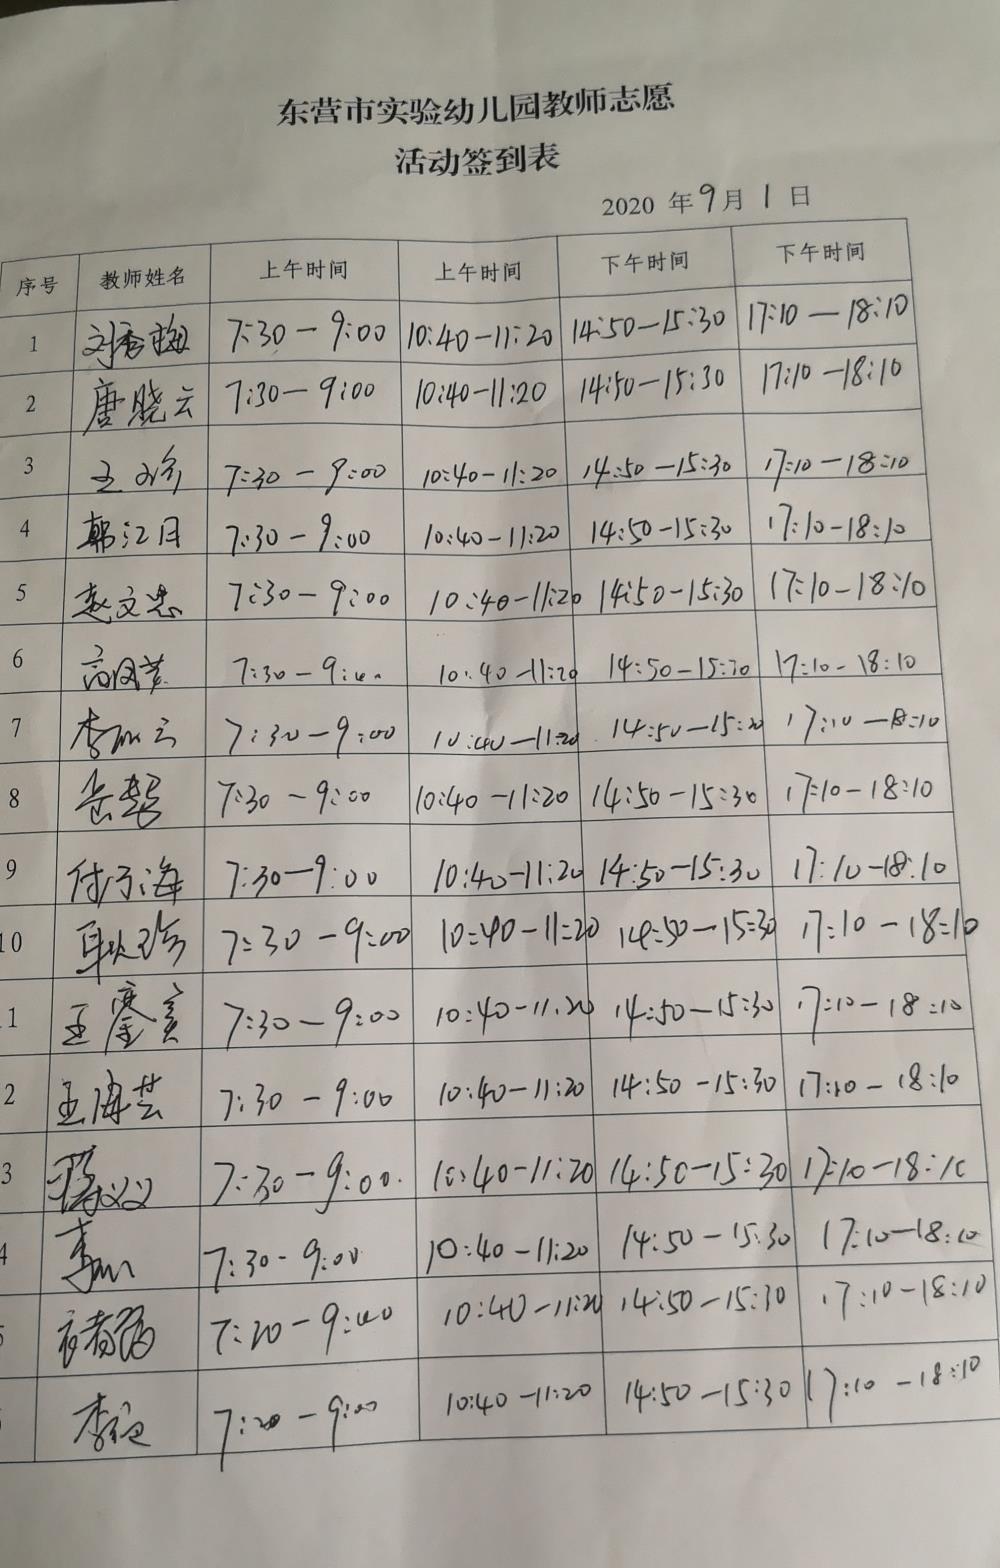 东营市实验幼儿园教师志愿
活动签到表
2020 年 9月 1 日
序号 教师姓名 上午时间 上午时间 下午时间 下午时间
1 刘秀梅 7:30-9:00 10:40-11:20 14:50-15:30 17:10-18:10
2 唐晓云 7:30-9:00 10:40-11:20 14:50-15:30 17:10-18:10
3 王 7:30-9:00 10:40-11:20 14:50-15:30 17:10-18:10
4 郭江月 7:30-9:00 10:40-11:20 14:50-15:30 17:10-18:10
5 赵文忠 7:30-9:00 10:40-11:20 14:50-15:30 17:10-18:10
6 高 7:30-9:00 10:40-11:20 14:50-15:30 17:10-18:10
7 李 云 7:30-9:00 10:40-11:20 14:50-15:30 17:10-18:10
8 岳 7:30-9:00 10:40-11:20 14:50-15:30 17:10-18:10
9 付 海 7:30-9:00 10:40-11:20 14:50-15:30 17:10-18:10
10 耿 7:30-9:00 10:40-11:20 14:50-15:30 17:10-18:10
1 王 7:30-9:00 10:40-11:20 14:50-15:30 17:10-18:10
2 王海芸 7:30-9:00 10:40-11:20 14:50-15:30 17:10-18:10
3 7:30-9:00. 10:40-11:20 14:50-15:30 17:10-18:10
4 李 7:30-9:00 10:40-11:20 14:50-15:30 17:10-18:10
5 7:20-9:00 10:40-11:20 14:50-15:30 17:10-18:10
李 7:20-9:00 10:40-11:20 14:50-15:30 17:10-18:10